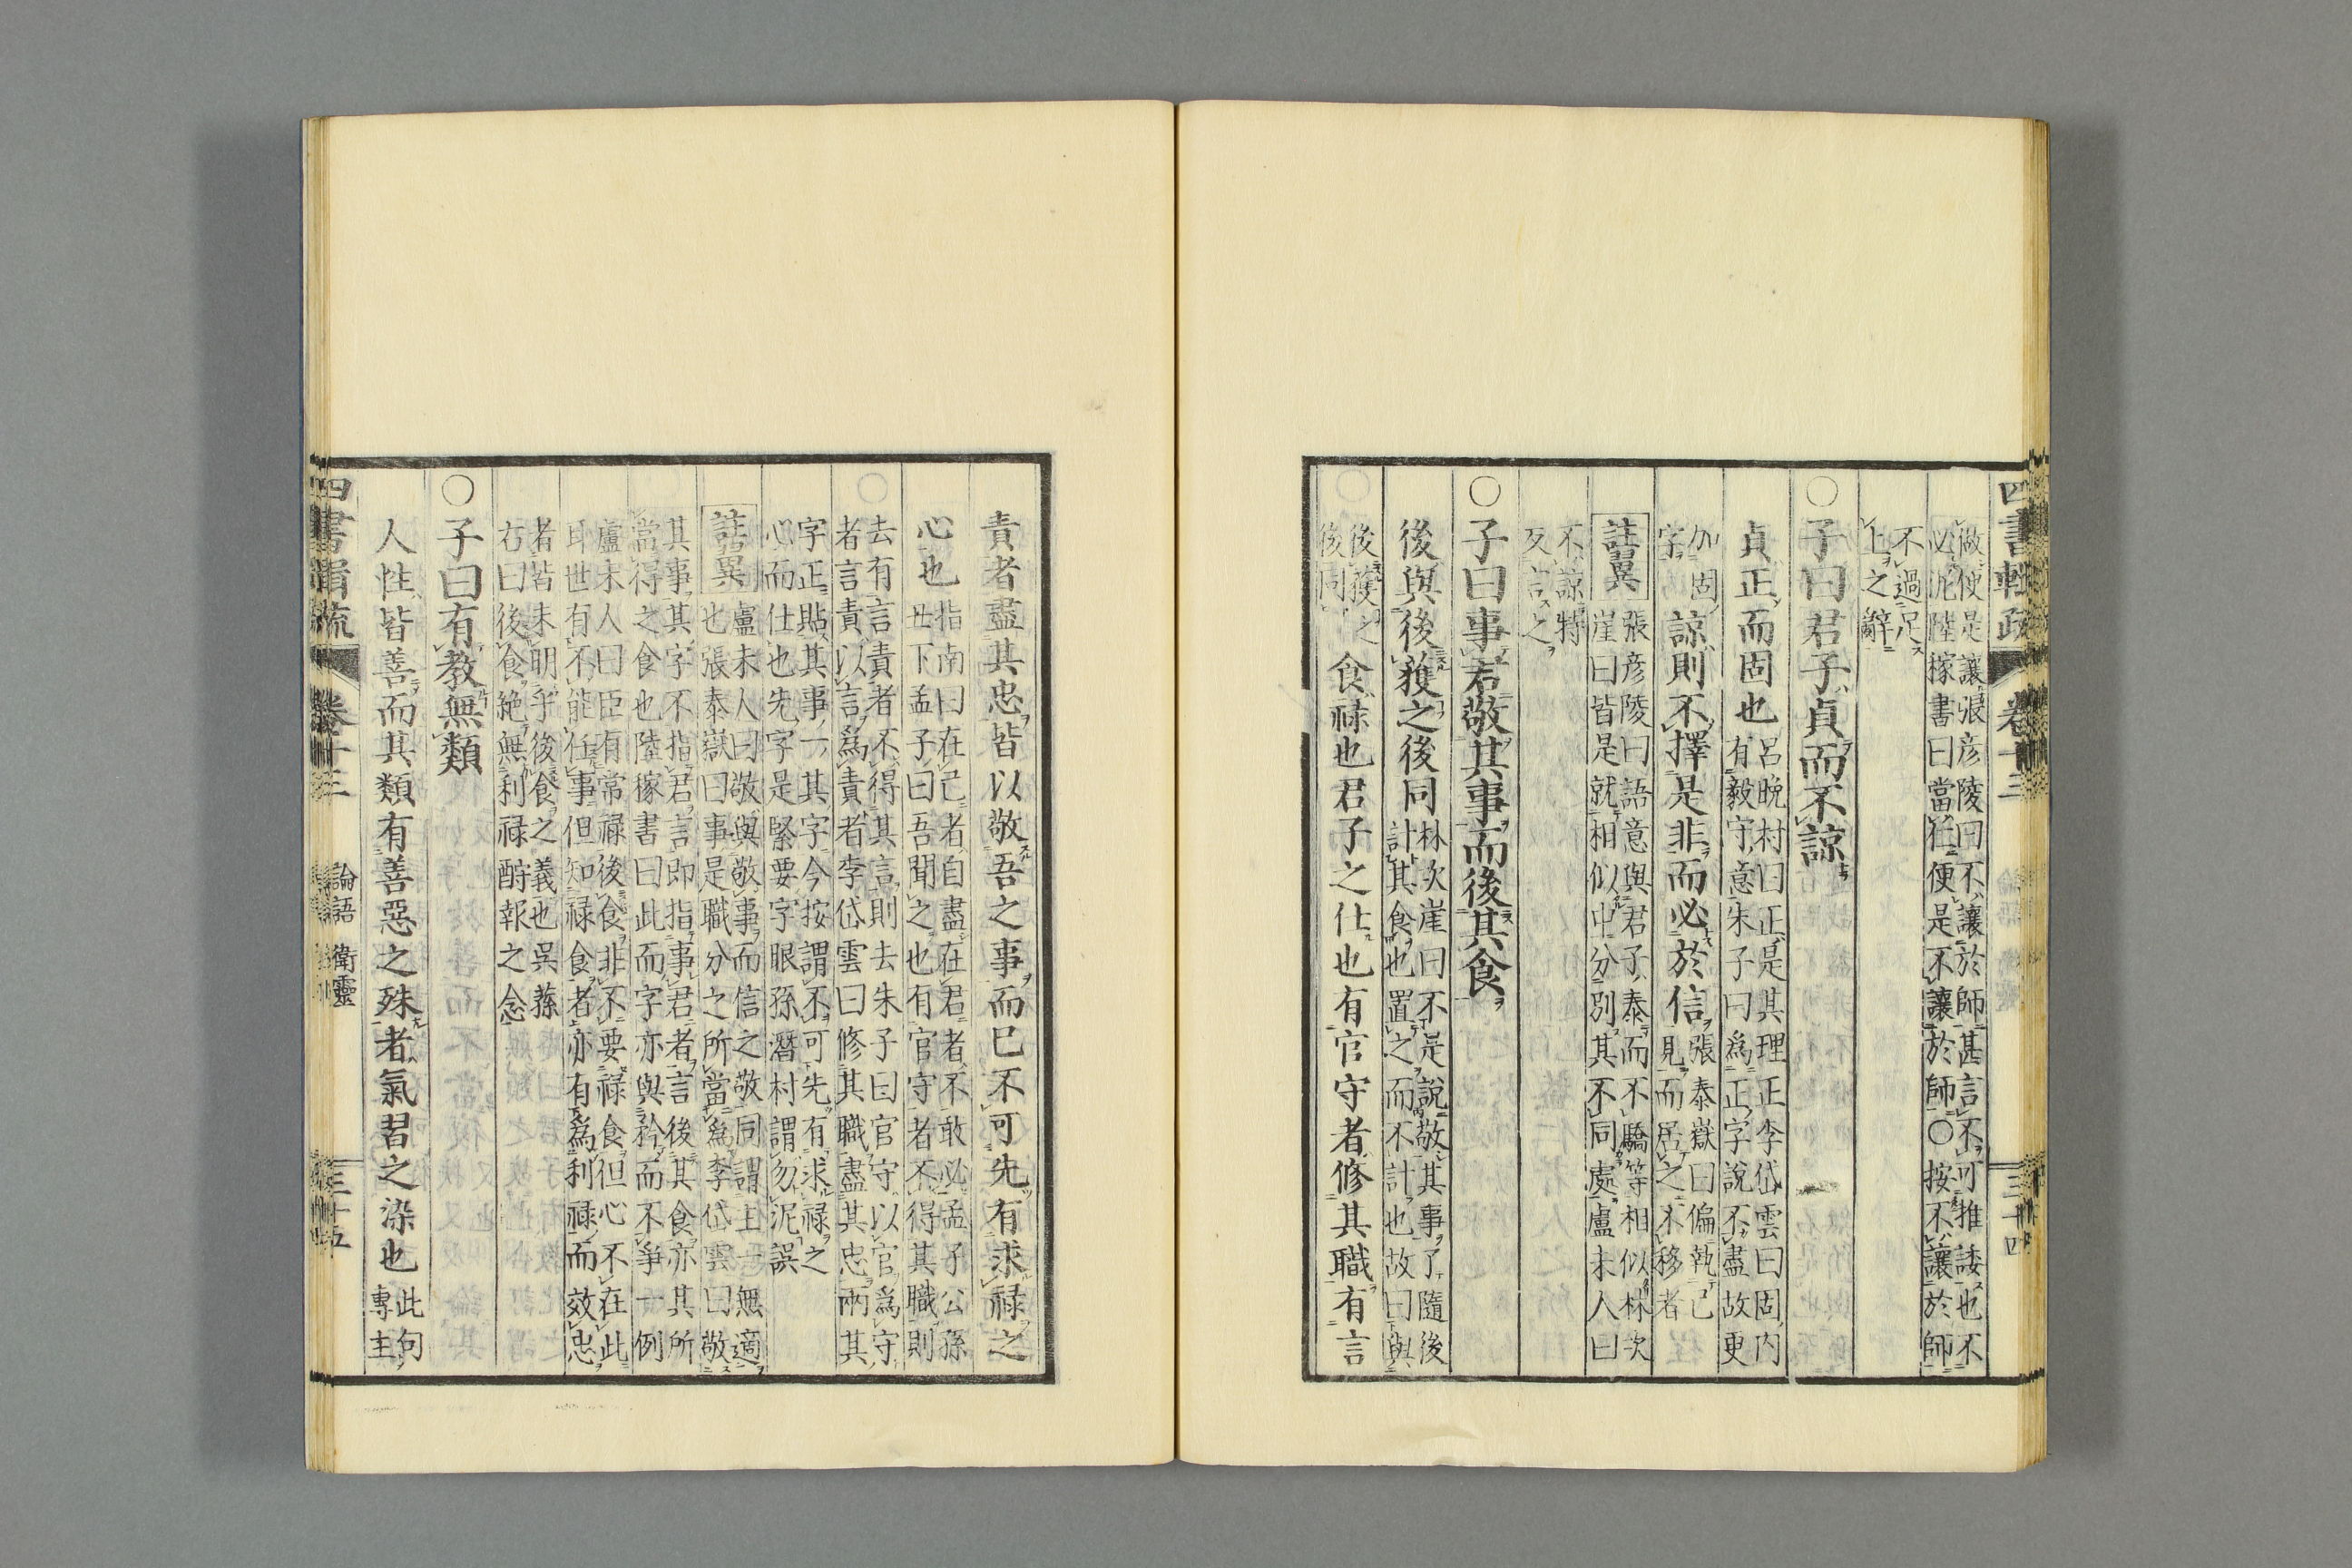 四書輯疏 卷十三 三十四
做便是讓張彦陵曰不讓於師甚言不可推諉也不
必泥陸稼書曰當任便是不讓於師〇按不讓於師
不過足
上之辭
〇子曰君子貞而不諒
貞正而固也
呂晩村曰正是其理正李岱雲曰固内
有毅守意朱子曰爲正字說不盡故更
加固
字
諒則不擇是非而必於信
張泰嶽曰偏執己
見而居之不移者
註異
張彦陵曰語意與君子泰而不驕等相似林次
崖曰皆是就相似中分別其不同處盧未人曰
不諒特
反言之
〇子曰事君敬其事而後其食
後與後獲之後同
林次崖曰不是說敬其事了隨後
計其食也置之而不計也故曰與
後獲之
後同
食祿也君子之仕也有官守者修其職有言
責者盡其忠皆以敬吾之事而已不可先有求祿之
心也
指南曰在己者自盡在君者不敢必孟子公孫
丑下孟子曰吾聞之也有官守者不得其職則
去有言責者不得其言則去朱子曰官守以官爲守
者言責以言爲責者李岱雲曰修其職盡其忠兩其
字正貼其事一其字今按謂不可先有求祿之
心而仕也先字是緊要字眼孫潛村謂勿泥誤
註異
盧未人曰敬與敬事而信之敬同謂主一無適
也張泰嶽曰事是職分之所當爲李岱雲曰敬
其事其字不指君言即指事君者言後其食亦其所
當得之食也陸稼書曰此而字亦與矜而不爭一例
盧未人曰臣有常祿後食非不要祿食但心不在此
耳世有不能任事但知祿食者亦有爲利祿而效忠
者皆未明乎後食之義也吳蓀
右曰後食絶無利祿酬報之念
〇子曰有教無類
人性皆善而其類有善惡之殊者氣習之染也
此句
專主
四書輯疏 卷十三 論語 衛靈 三十五